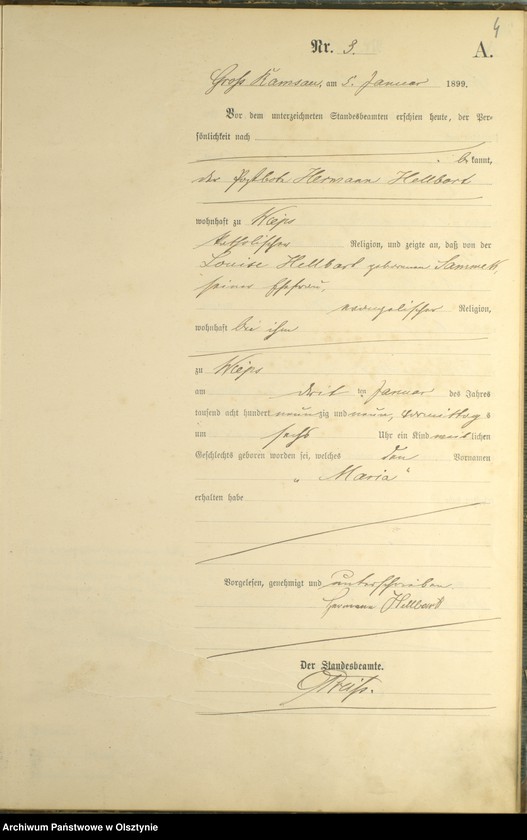 4
Nr. 3. A.
Gross Ramsau, am 5. Januar 1899.
Vor dem unterzeichneten Standesbeamten erschien heute, der Per-
sönlichkeit nach
be kannt,
der Postbote Hermann Hellbart
wohnhaft zu Wieps
katholischer Religion, und zeigte an, daß von der
Louise Hellbart geborenen
seiner Ehefrau,
evangelischer Religion,
wohnhaft bei ihm
zu Wieps
am drit ten Januar des Jahres
tausend acht hundert neunzig und neun, Vormittags
um sechs Uhr ein Kind weiblichen
Geschlechts geboren worden sei, welches den Vornamen
„Maria“
erhalten habe
Vorgelesen, genehmigt und unterschrieben
Hermann Hellbart
Der Standesbeamte.
Archiwum Państwowe w Olsztynie